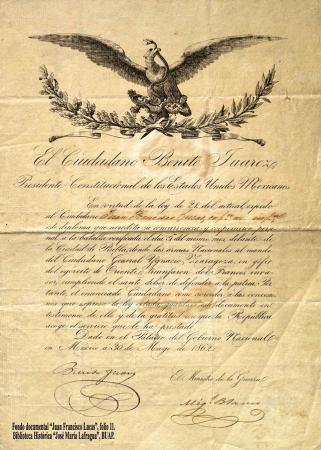 El Ciudadano Benito Juarez,
Presidente Constitucional de los Estados Unidos Mexicanos
En virtud de la ley de 21 del actual expide
al Ciudadano Juan Francisco Lucas
diploma que acredita su concurrencia y
á la batalla verificada el dia 5 del mismo mes delante de
la Ciudad de Puebla, donde las armas Nacionales al mando
del Ciudadano General Ygnacio Zaragoza, en gefe
del egercito de Oriente triunfaron del Frances inva-
sor, cumpliendo el santo deber de defender a la patria. Por
tanto, el mencionado Ciudadano
que espresa la ley
testimonio de ello y de la gratitud que la República
el servicio que le ha prestado
Dado en el Palacio del Gobierno Nacional
en Mexico a 30 de Mayo de 1862.
Benito Juarez
El Ministro de la Guerra
Mig. Blanco
Fondo documental "Juan Francisco Lucas", folio 11.
Biblioteca Histórica "José María Lafragua", BUAP.